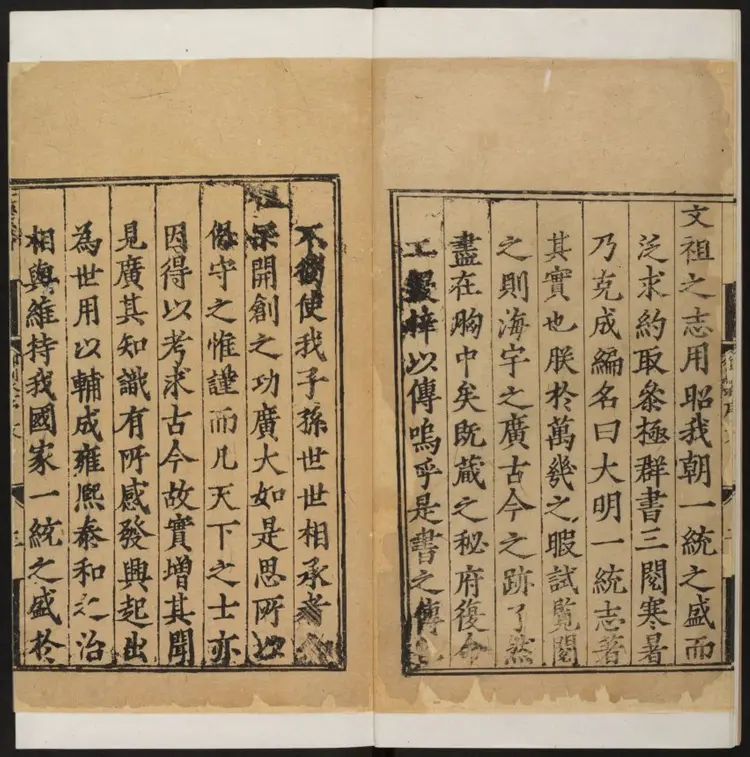 文祖之志用昭我朝一統之盛而
泛求約取叅極群書三閱寒暑
乃克成編名曰大明一統志著
其實也朕於萬幾之暇試覽閱
之則海宇之廣古今之跡了然
盡在胸中矣既蔵之秘府復命
工鋟梓以傳嗚乎是書之傳
不獨使我子孫世世相承者
祖宗開創之功廣大如是思所以
保守之惟謹而凡天下之士亦
因得以考求古今故實增其聞
見廣其知識有所感發興起出
為世用以輔成雍熙泰和之治
相與維持我國家一統之盛於